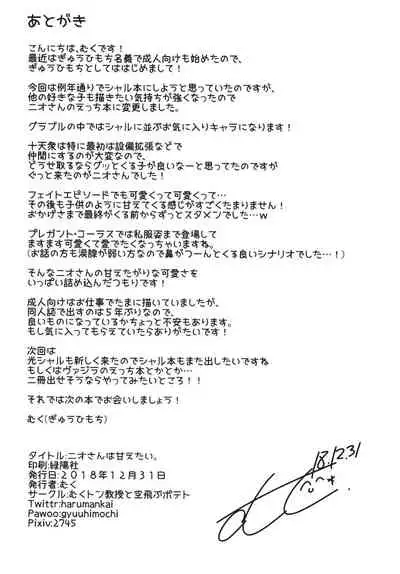 あとがき
こんにちは、むくです!
最近はぎゅうひもち名義で成人向けも始めたので、
ぎゅうひもちとしてははじめまして!
今回は例年通りでシャル本にしようと思っていたのですが、
他の好きな子も描きたい気持ちが強くなったので
ニオさんのえっち本に変更しました。
グラブルの中ではシャルに並ぶお気に入りキャラになります!
十天衆は特に最初は設備拡張などで
仲間にするのが大変なので、
どうせ取るならグッとくる子が良いなーと思ってたのですが
ぐっと来たのがニオさんでした!
フェイトエピソードでも可愛くって可愛くって…
その後も子供のように甘えてくる感じがすごくたまりません!
おかげさまで最終がくる前からずっとスタメンでした…w
プレガント・コーラスでは私服姿まで登場して
ますます可愛くて愛でたくなっちゃいますね。
(お話の方も涙腺が弱い方なので鼻がつーんとくる良いシナリオでした…!)
そんなニオさんの甘えたがりな可愛さを
いっぱい詰め込んだつもりです!
成人向けはお仕事でたまに描いていましたが、
同人誌で出すのは5年ぶりなので、
良いものになっているかちょっと不安もあります。
もし気に入ってもらえていたらありがたいです!
次回は
光シャルも新しく来たのでシャル本もまた出したいですね
もしくはヴァジラのえっち本とかとか…
二冊出せそうならやってみたいところ!!
それでは次の本でお会いしましょう!
むく(ぎゅうひもち)
タイトル:ニオさんは甘えたい。
印刷:緑陽社
発行日:2018年12月31日
発行者:むく
サークル:むくトン教授と空飛ぶポテト
Twittr:harumankai
Pawoo:gyuuhimochi
Pixiv:2745
18.12.31